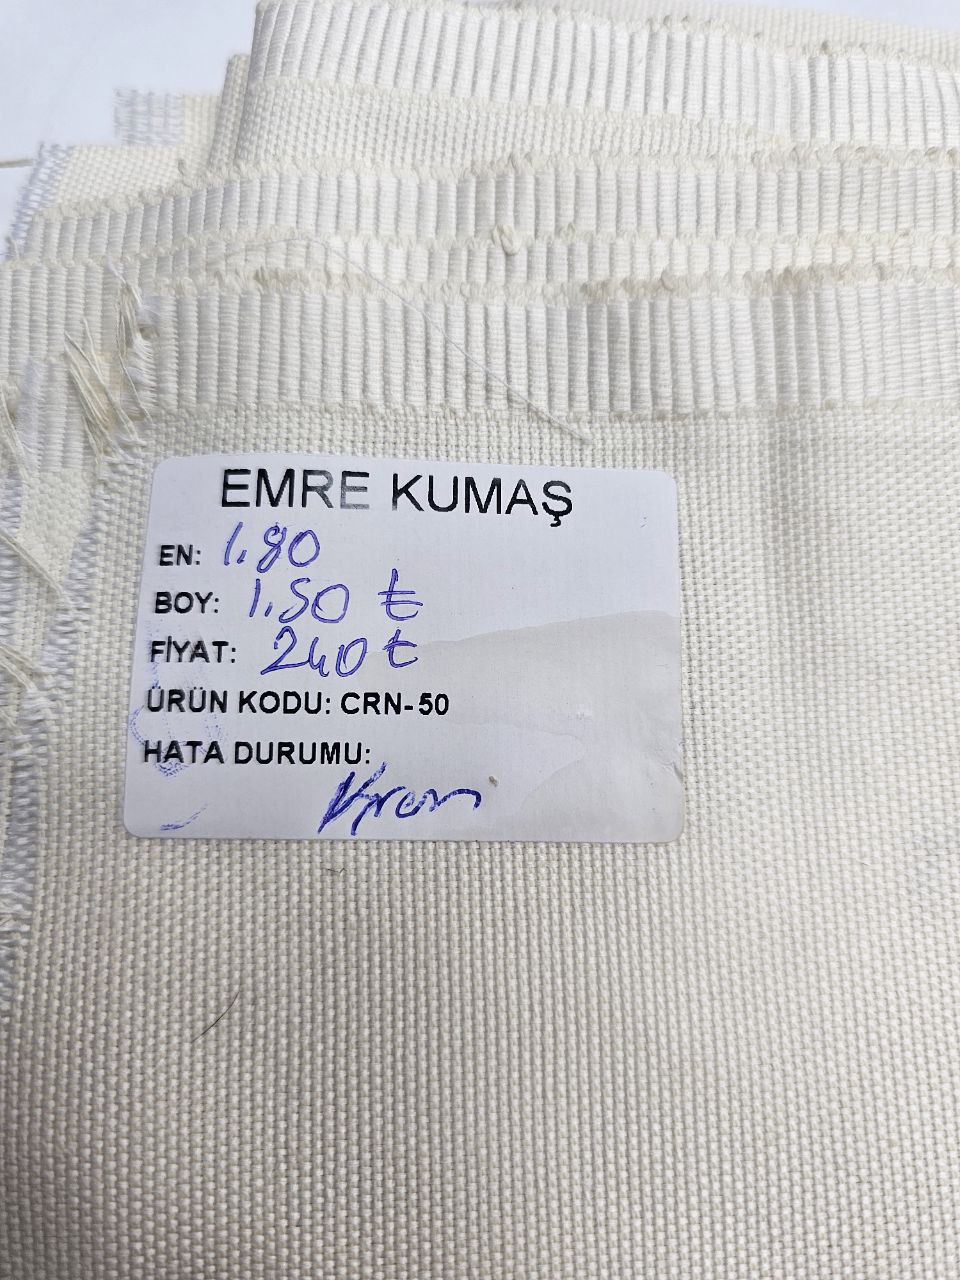 EMRE KUMAŞ
EN: 1.80
BOY: 1.50 ₺
FİYAT: 240 ₺
ÜRÜN KODU: CRN-50
HATA DURUMU:
Krem